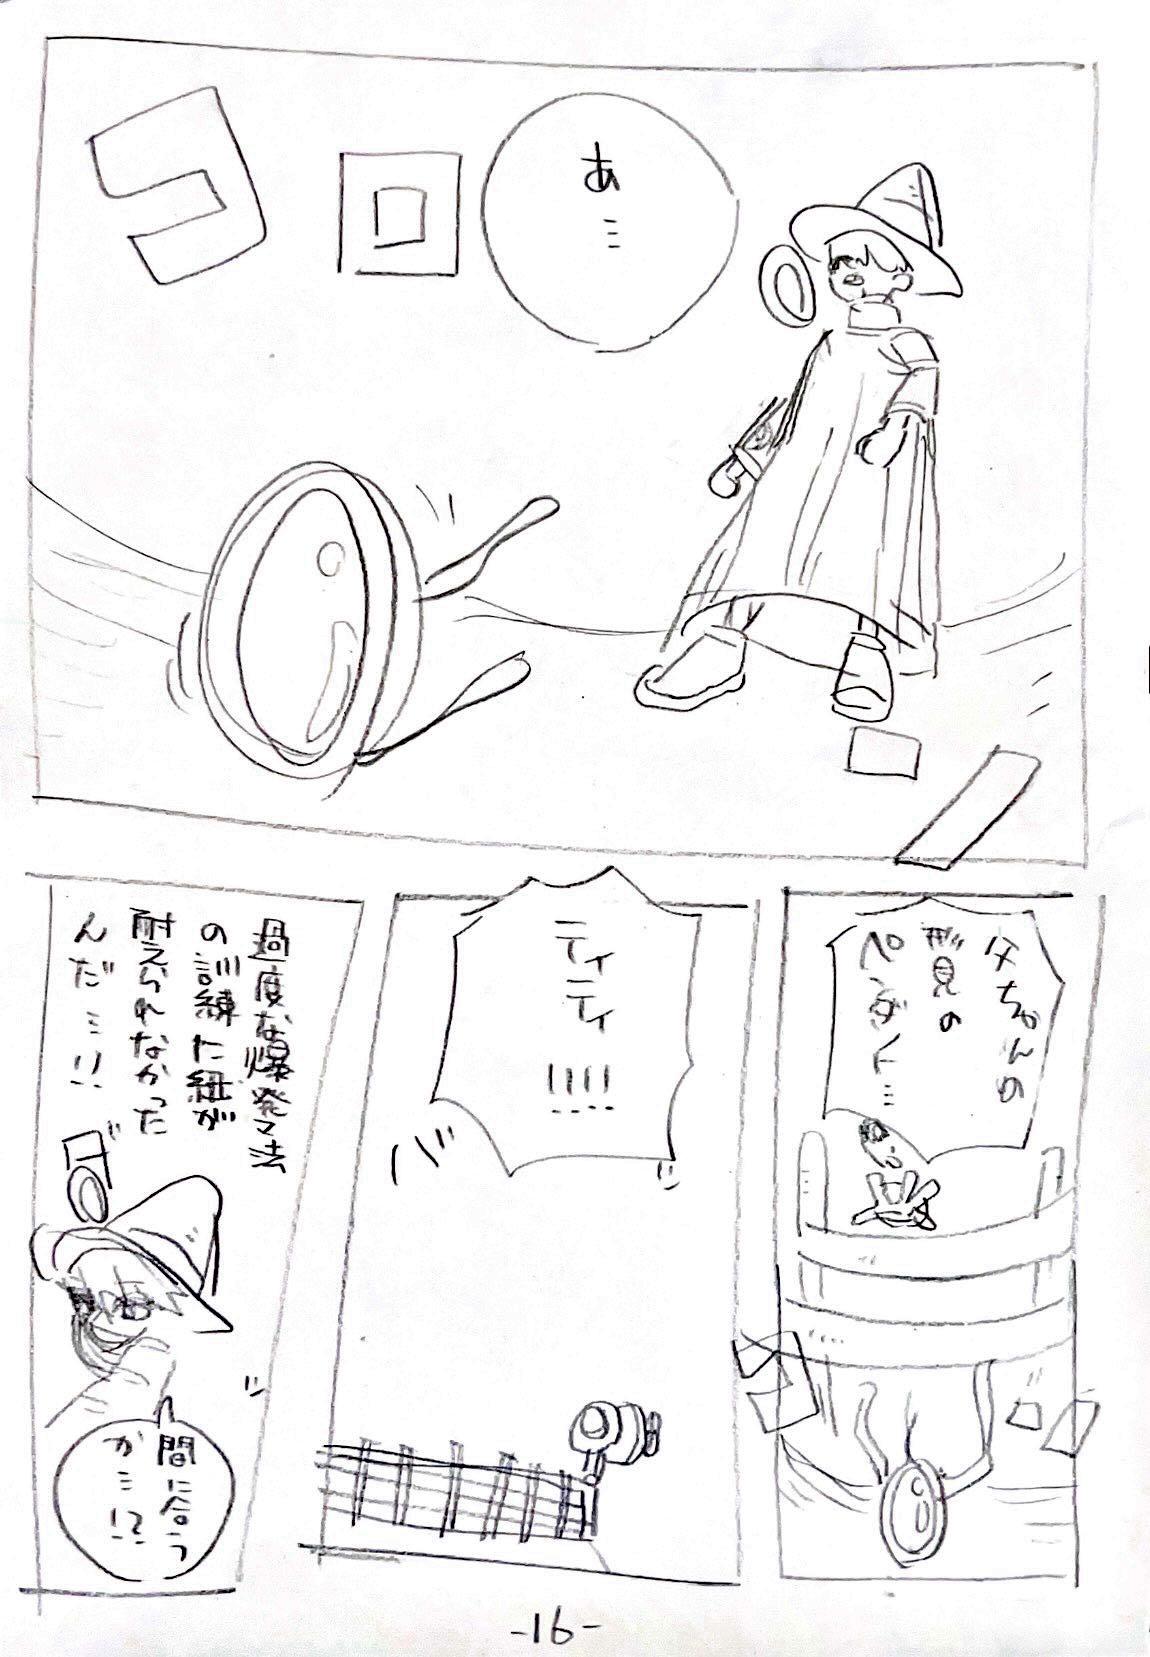 あ…
コロ
父ちゃんの
形見の
ペンダント…
ティティ!!!!
バッ
過度な爆発マ法
の訓練た紐が
耐えられなかった
んだ…!!
間に合う
か…!?
-16-